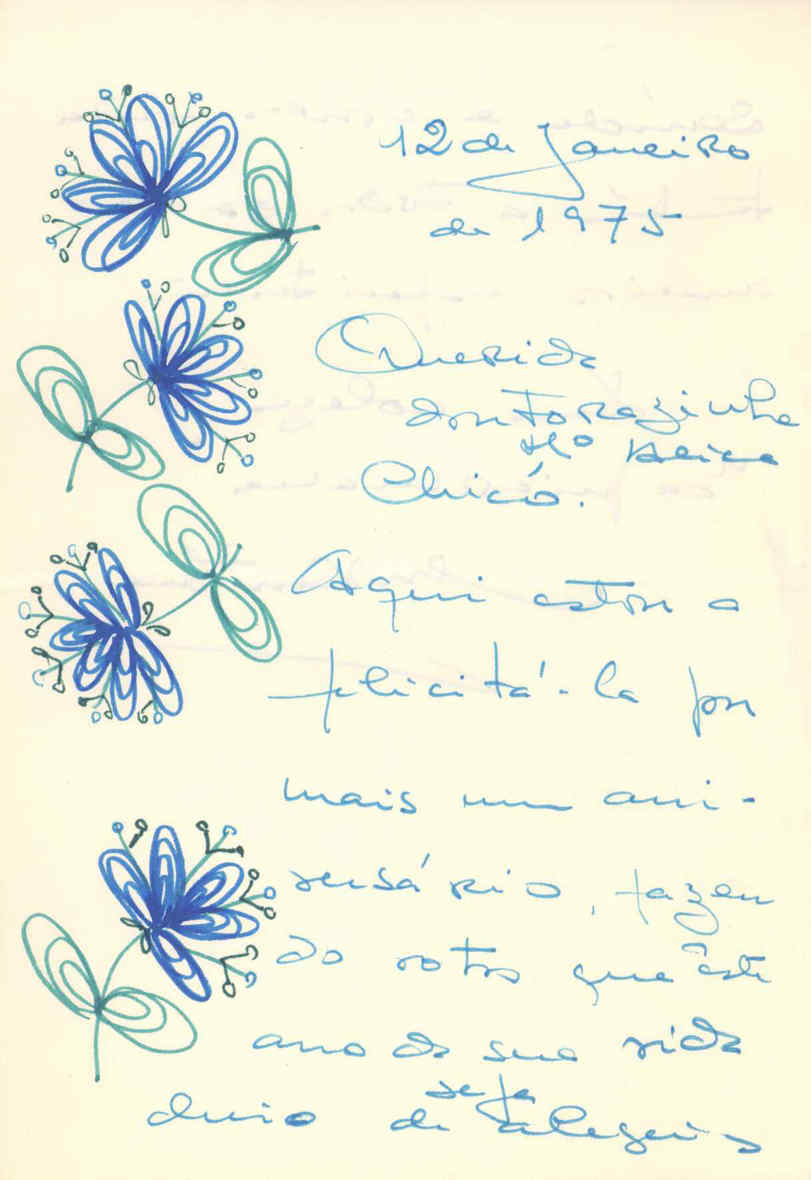 12 de Janeiro
de 1975
Querida
doutorazinha
Mª Alice
Chicó.
Aqui estou a
felicitá-la por
mais um ani-
versário, fazen
do votos que êste
ano da sua vida
seja
cheio de alegrias